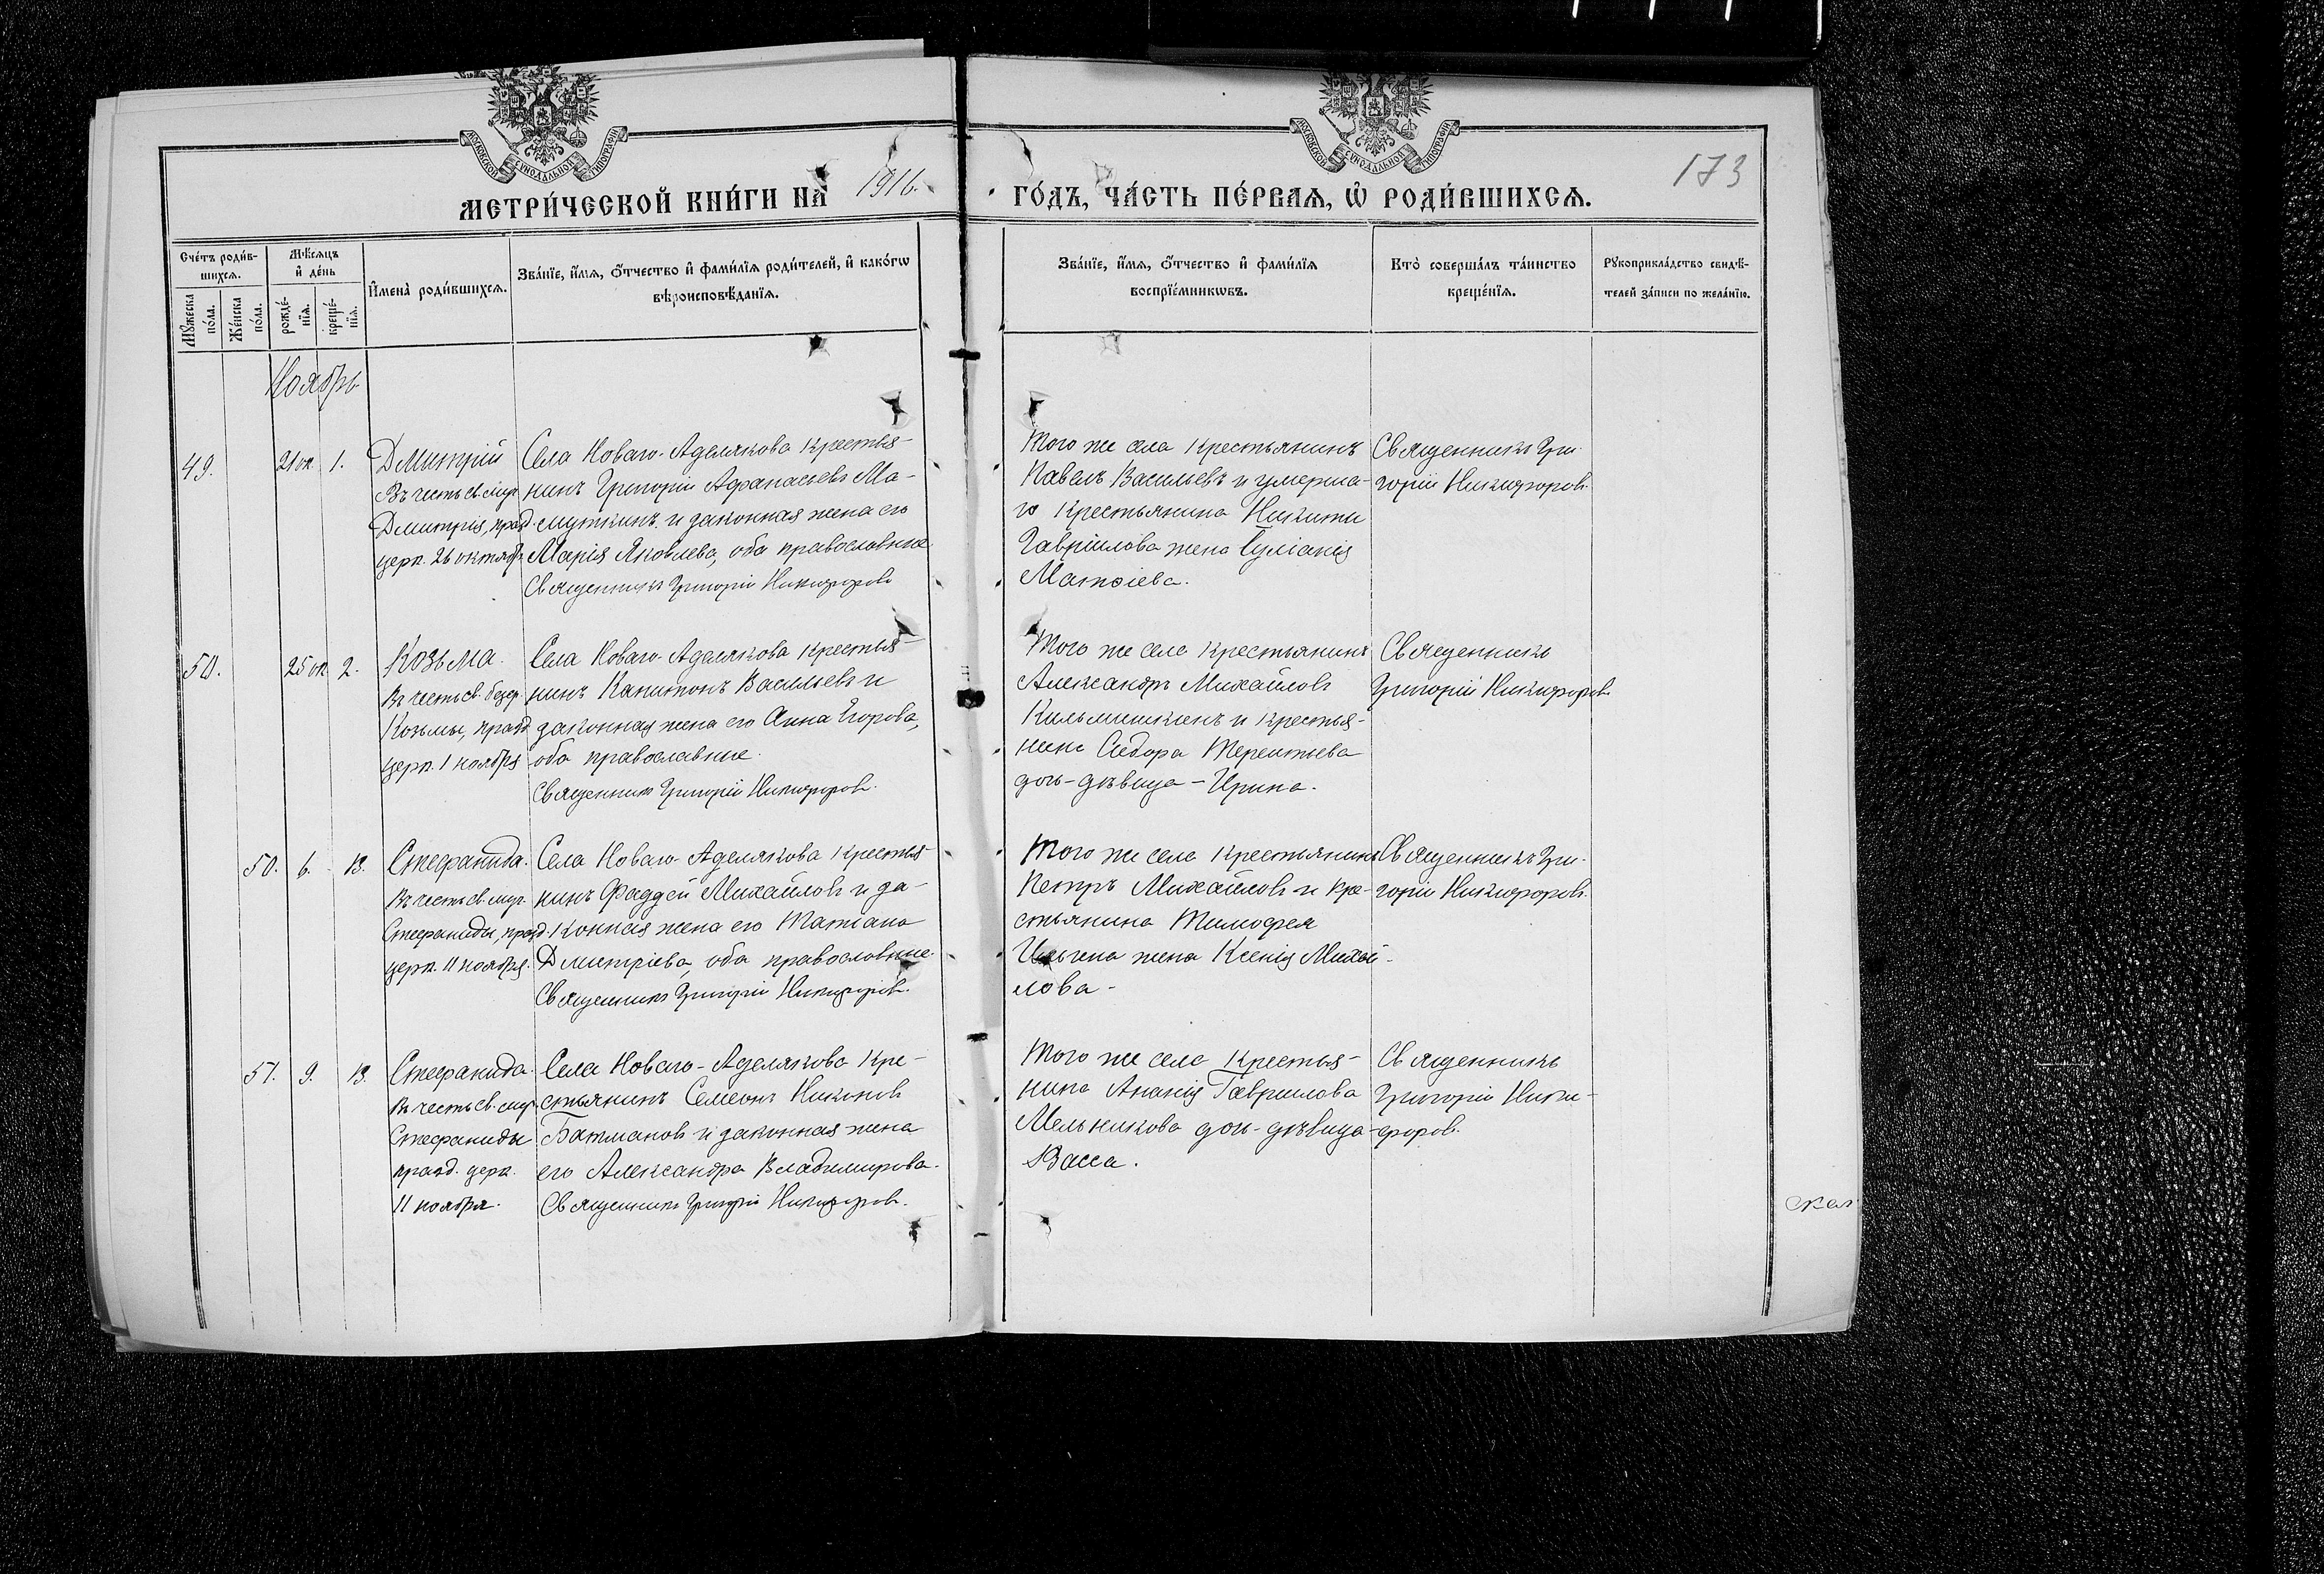 МОСКОВСКОЙ СѴНОДАЛЬНОЙ ТИПОГРАФІИ
МОСКОВСКОЙ СѴНОДАЛЬНОЙ ТИПОГРАФІИ
173
МЕТРИ́ЧЕСКОЙ КНИ́ГИ НА̀ 1916. ГО́ДЪ, ЧА́СТЬ ПЕ́РВАѦ, Ѡ҆ РОДИ́ВШИХСѦ.
Сче́тъ роди́в-
шихсѧ.
Мꙋ́жеска
по́ла.
Же́нска
по́ла.
Мѣ́сѧцъ
и҆ де́нь
рожде́-
нїѧ.
креще́-
нїѧ.
И҆мена̀ роди́вшихсѧ.
Зва́нїе, и҆́мѧ, ѻ҆́тчество и҆ фами́лїѧ роди́телей, и҆ како́гѡ
вѣроисповѣ́данїѧ.
Зва́нїе, и҆́мѧ, ѻ҆́тчество и҆ фами́лїѧ
воспрїе́мникѡвъ.
Кто̀ соверша́лъ та́инство
креще́нїѧ.
Рꙋкоприкла́дство свидѣ́-
телей за́писи по жела́нїю.
Ноябрь
49.
21 ок.
1.
Дмитрій
Въ честь св. муч.
Дмитрія, празд.
церк. 26 октябр.
Села Новаго-Аделякова крестья-
нинъ Григорій Афанасьевъ Ма-
смуткинъ и законная жена его
Марія Яковлева, оба православные.
Священникъ Григорій Никифоровъ
Того же села крестьянинъ
Павелъ Васильевъ и умерша-
го крестьянина Никиты
Гавріилова жена Іуліанія
Матѳіева.
Священникъ Гри-
горій Никифоровъ.
50.
25 ок.
2.
Козьма.
Въ честь св. безср.
Козьмы, празд.
церк. 1 ноября
Села Новаго-Аделякова крестья-
нинъ Капитонъ Васильевъ и
законная жена его Анна Егорова,
оба православные.
Священникъ Григорій Никифоровъ.
Того же села крестьянинъ
Александръ Михайловъ
Кильмишкинъ и крестья-
нина Сидора Терентьева
дочь-дѣвица-Ирина.
Священникъ
Григорій Никифоровъ.
50.
6.
13.
Стефанида.
Въ честь св. муч.
Стефаниды, празд.
церк. 11 ноября.
Села Новаго-Аделякова крестья-
нинъ Фаддей Михайловъ и за-
конная жена его Татіана
Дмитріева, оба православные.
Священникъ Григорій Никифоровъ.
Того же села крестьянинъ
Петръ Михайловъ и кре-
стьянина Тимофея
Ильина жена Ксенія Михай-
лова-
Священникъ Гри-
горій Никифоровъ.
51.
9.
13.
Стефанида.
Въ честь св. муч.
Стефаниды
празд. церк.
11 ноября.
Села Новаго-Аделякова кре-
стьянинъ Семеонъ Никоновъ
Батмановъ и законная жена
его Александра Владимирова.
Священникъ Григорій Никифоровъ.
Того же села крестья-
нина Ананія Гавриилова
Мельникова дочь-дѣвица
Васса.
Священникъ
Григорій Ники-
форовъ.